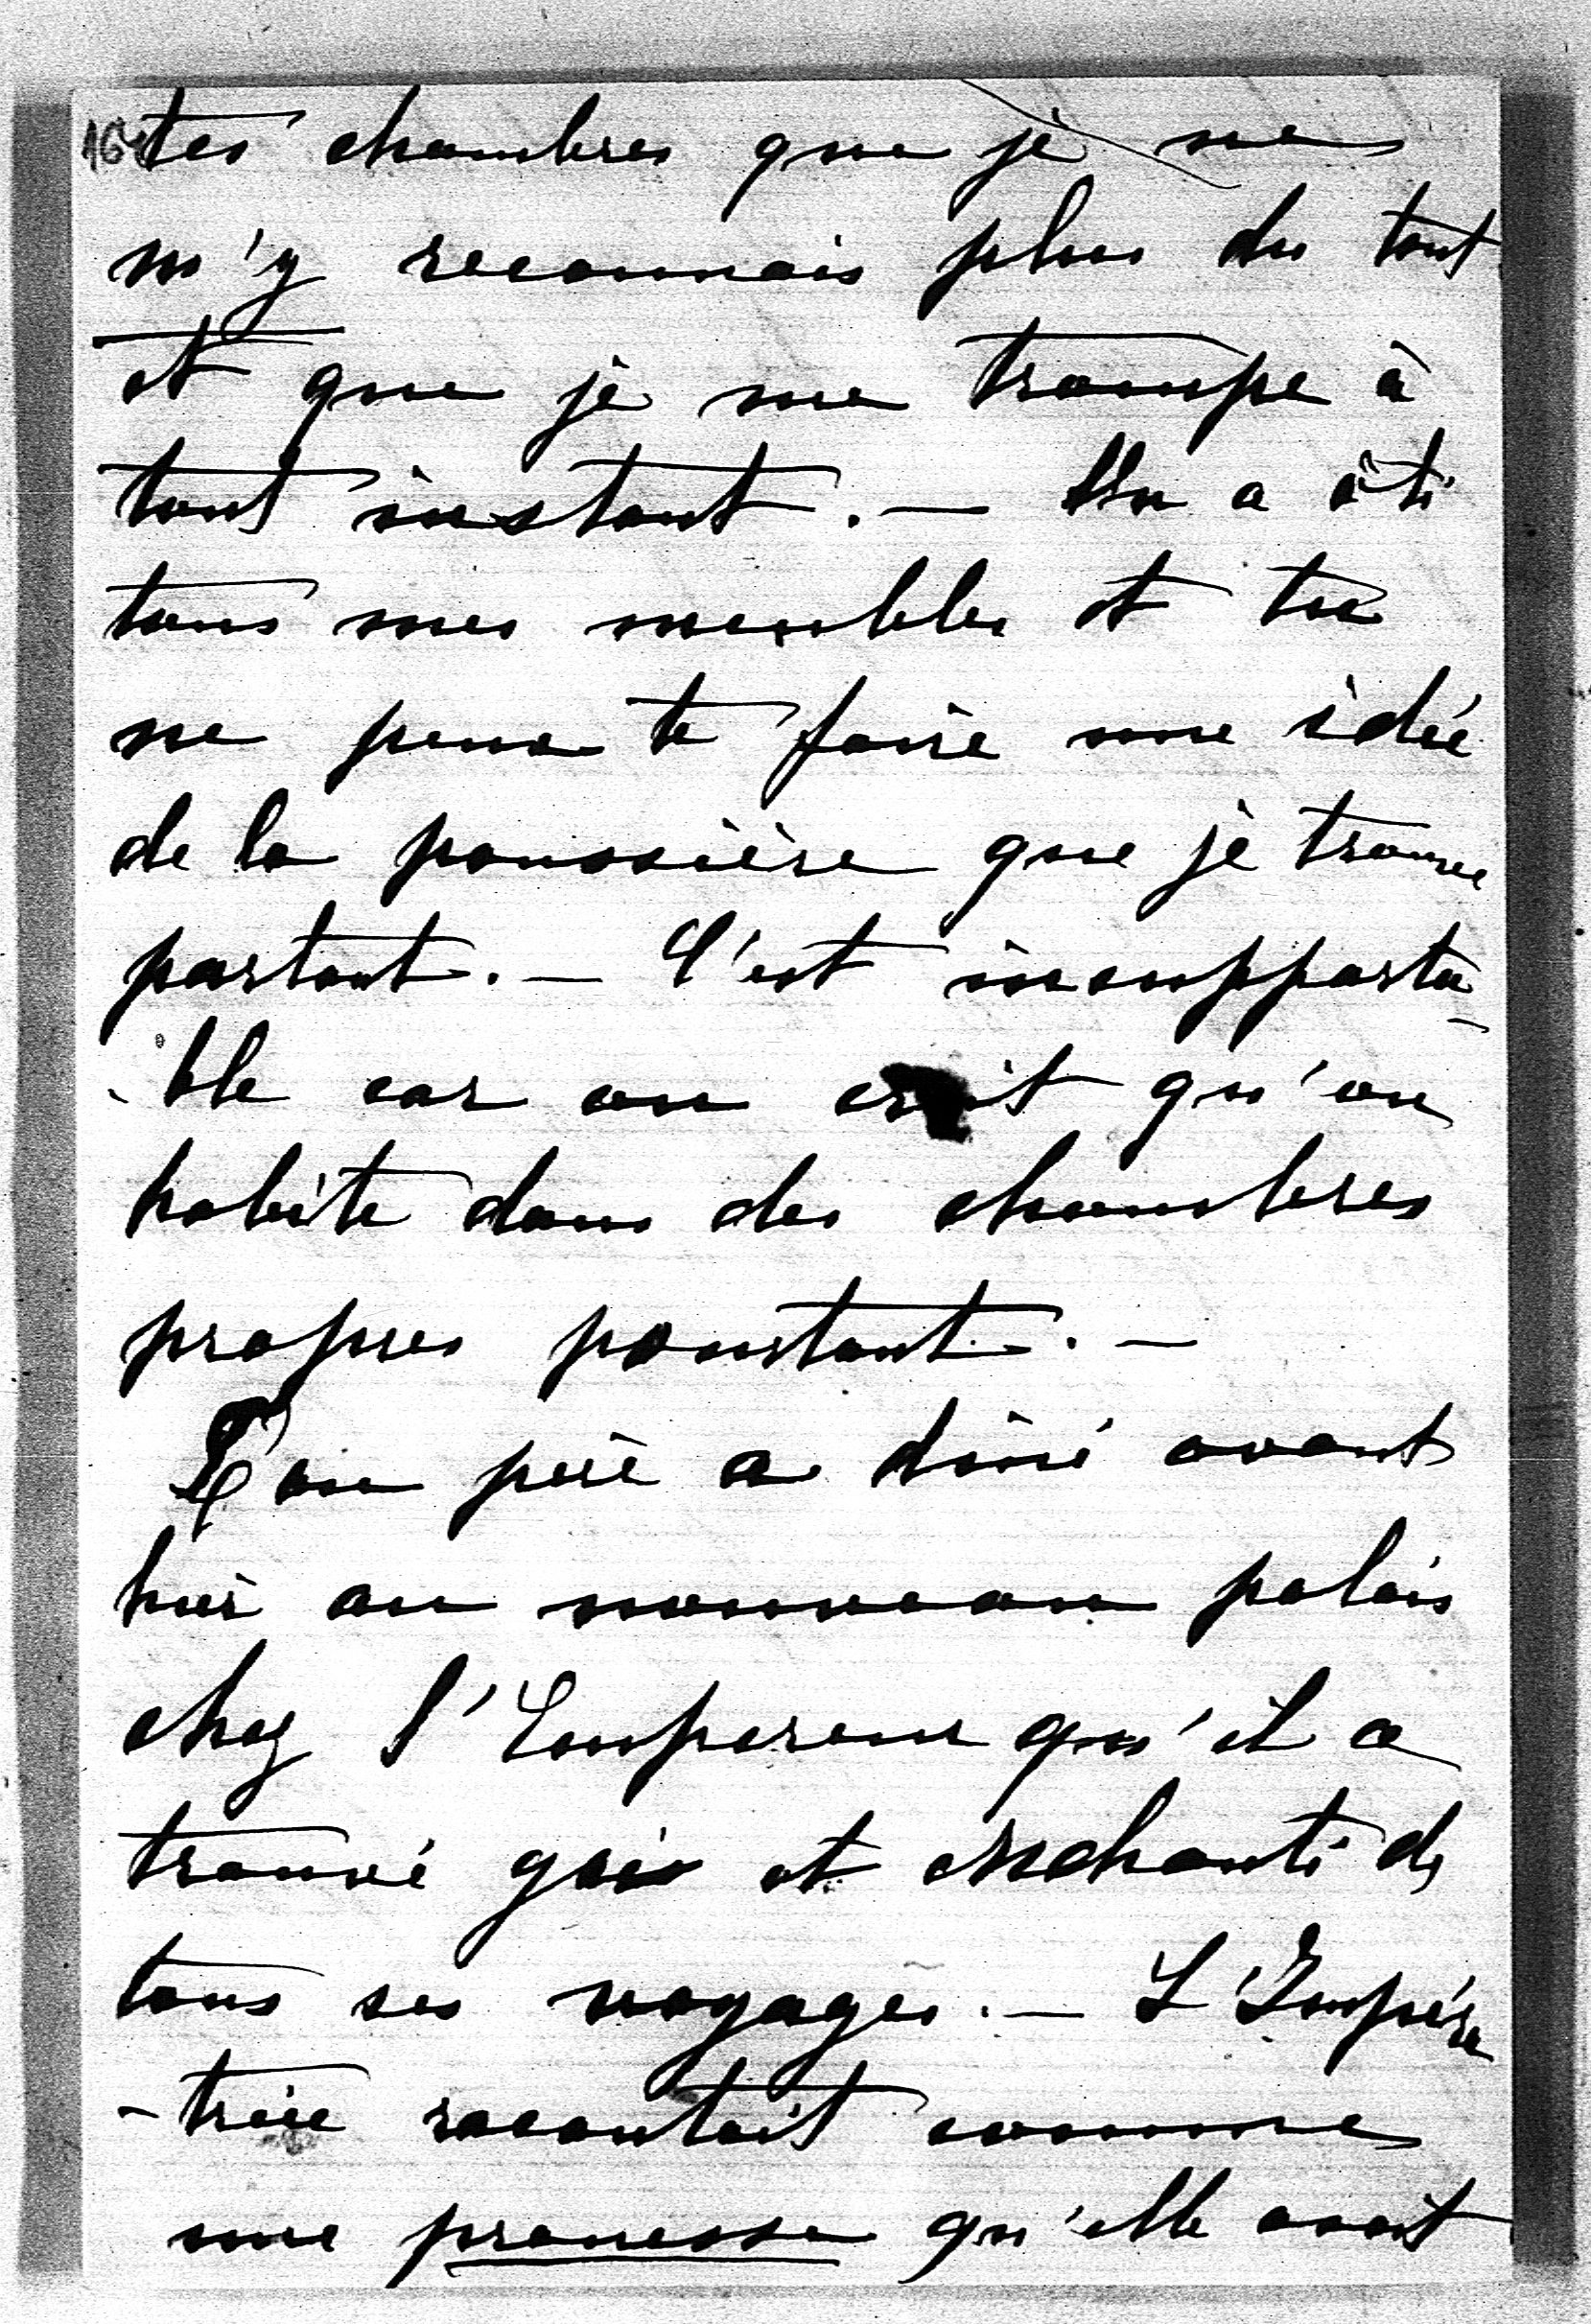 tes chambres que je ne
m'y reconnais plus du tout
et que je me trompe à
tout instant. — On a ôté
tous mes meubles et tu
ne peux te faire une idée
de la poussière que je trouve
partout. — C'est insupporta-
-ble car on croit qu'on
habite dans des chambres
propres pourtant. —
Ton père a dîné avant
hier au nouveau palais
chez l'Empereur qu'il a
trouvé gai et enchanté de
tous ses voyages. — L'Impéra
-trice racontait comme
une prouesse qu'elle avait